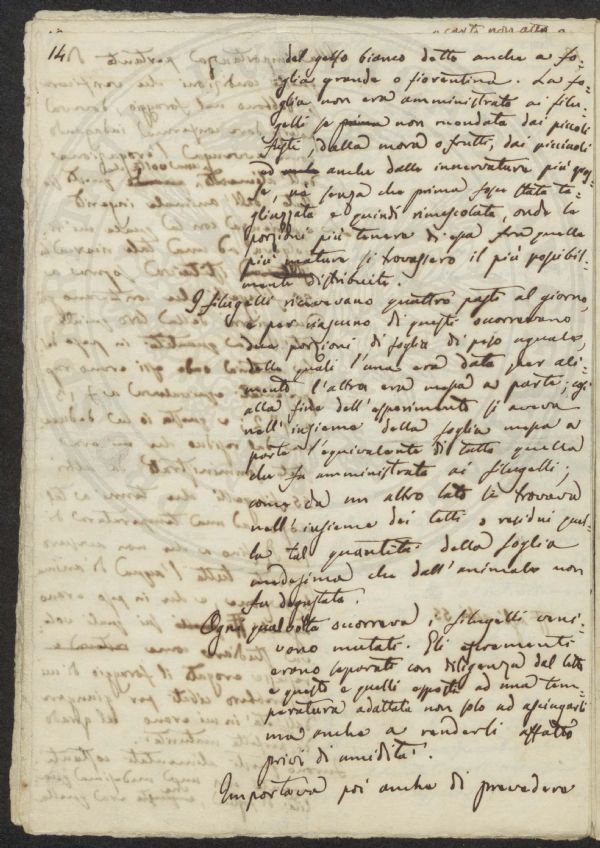 14
del gelso bianco detto anche a fo-
glia grande o fiorentina. La fo-
glia non era amministrata ai filu-
gelli se prima non mondata dai piccoli
fusti, dalla mora o frutti, dai picciuoli
ed anche dalle innervature più gros-
se, nè senza che prima fosse stata ta-
gliuzzata e quindi rimescolata, onde le
porzioni più tenere di essa fra quelle
più mature si trovassero il più possibil-
mente distribuite.
I filugelli ricevevano quattro pasti al giorno,
e per ciascuno di questi occorrevano
due porzioni di foglia di peso uguale,
delle quali l'una era data per ali-
mento l'altra era messa a parte; così
alla fine dell'esperimento si aveva
nell'insieme della foglia messa a
parte l'equivalente di tutta quella
che fu amministrata ai filugelli;
come da un altro lato si trovava
nell'insieme dei letti o residui quel-
la tal quantità della foglia
medesima che dall'animale non
fu degustata.
Ogni qual volta occorreva, i filugelli veni-
vano mutati. Gli escrementi
erano separati con diligenza dal letto
e questo e quelli esposti ad una tem-
peratura adattata non solo ad asciugarli
ma anche a renderli affatto
privi di umidità.
Importava poi anche di prevedere